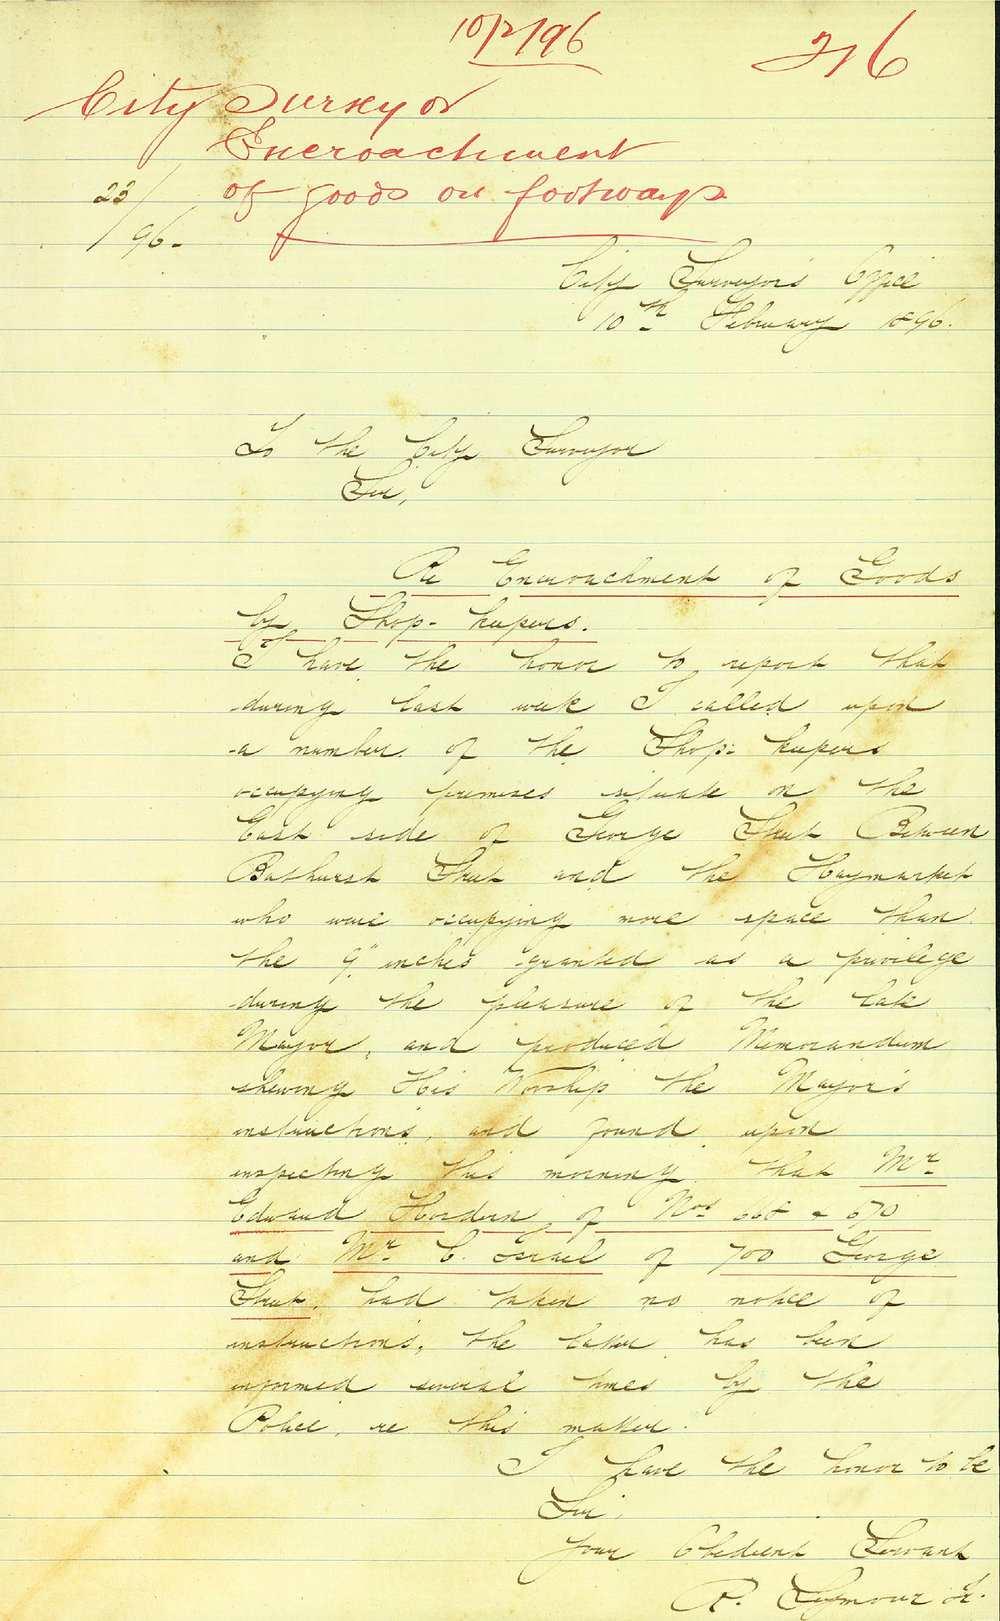 10/2/96
216
City Surveyor
Encroachment
of goods on footways
23/
96.
City Surveyor's Office
10th February 1896.
To the City Surveyor
Sir,
Re Encroachment of Goods
by Shop-keepers.
I have the honor to report that
during last week I called upon
a number of the Shop-keepers
occupying premises situate on the
East side of George Street Between
Bathurst Street and the Haymarket
who were occupying more space than
the 9" inches granted as a privilege
during the pleasure of the late
Mayor, and produced Memorandum
shewing His Worship the Mayor's
instructions, and found upon
inspecting this morning that Mr
Edward Hordern of Nos 668 & 670
and Mr C. Israel of 700 George
Street, had taken no notice of
instructions, the latter has been
informed several times by the
Police, re this matter.
I have the honor to be
Sir,
Your Obedient Servant
R. Seymour Jr.